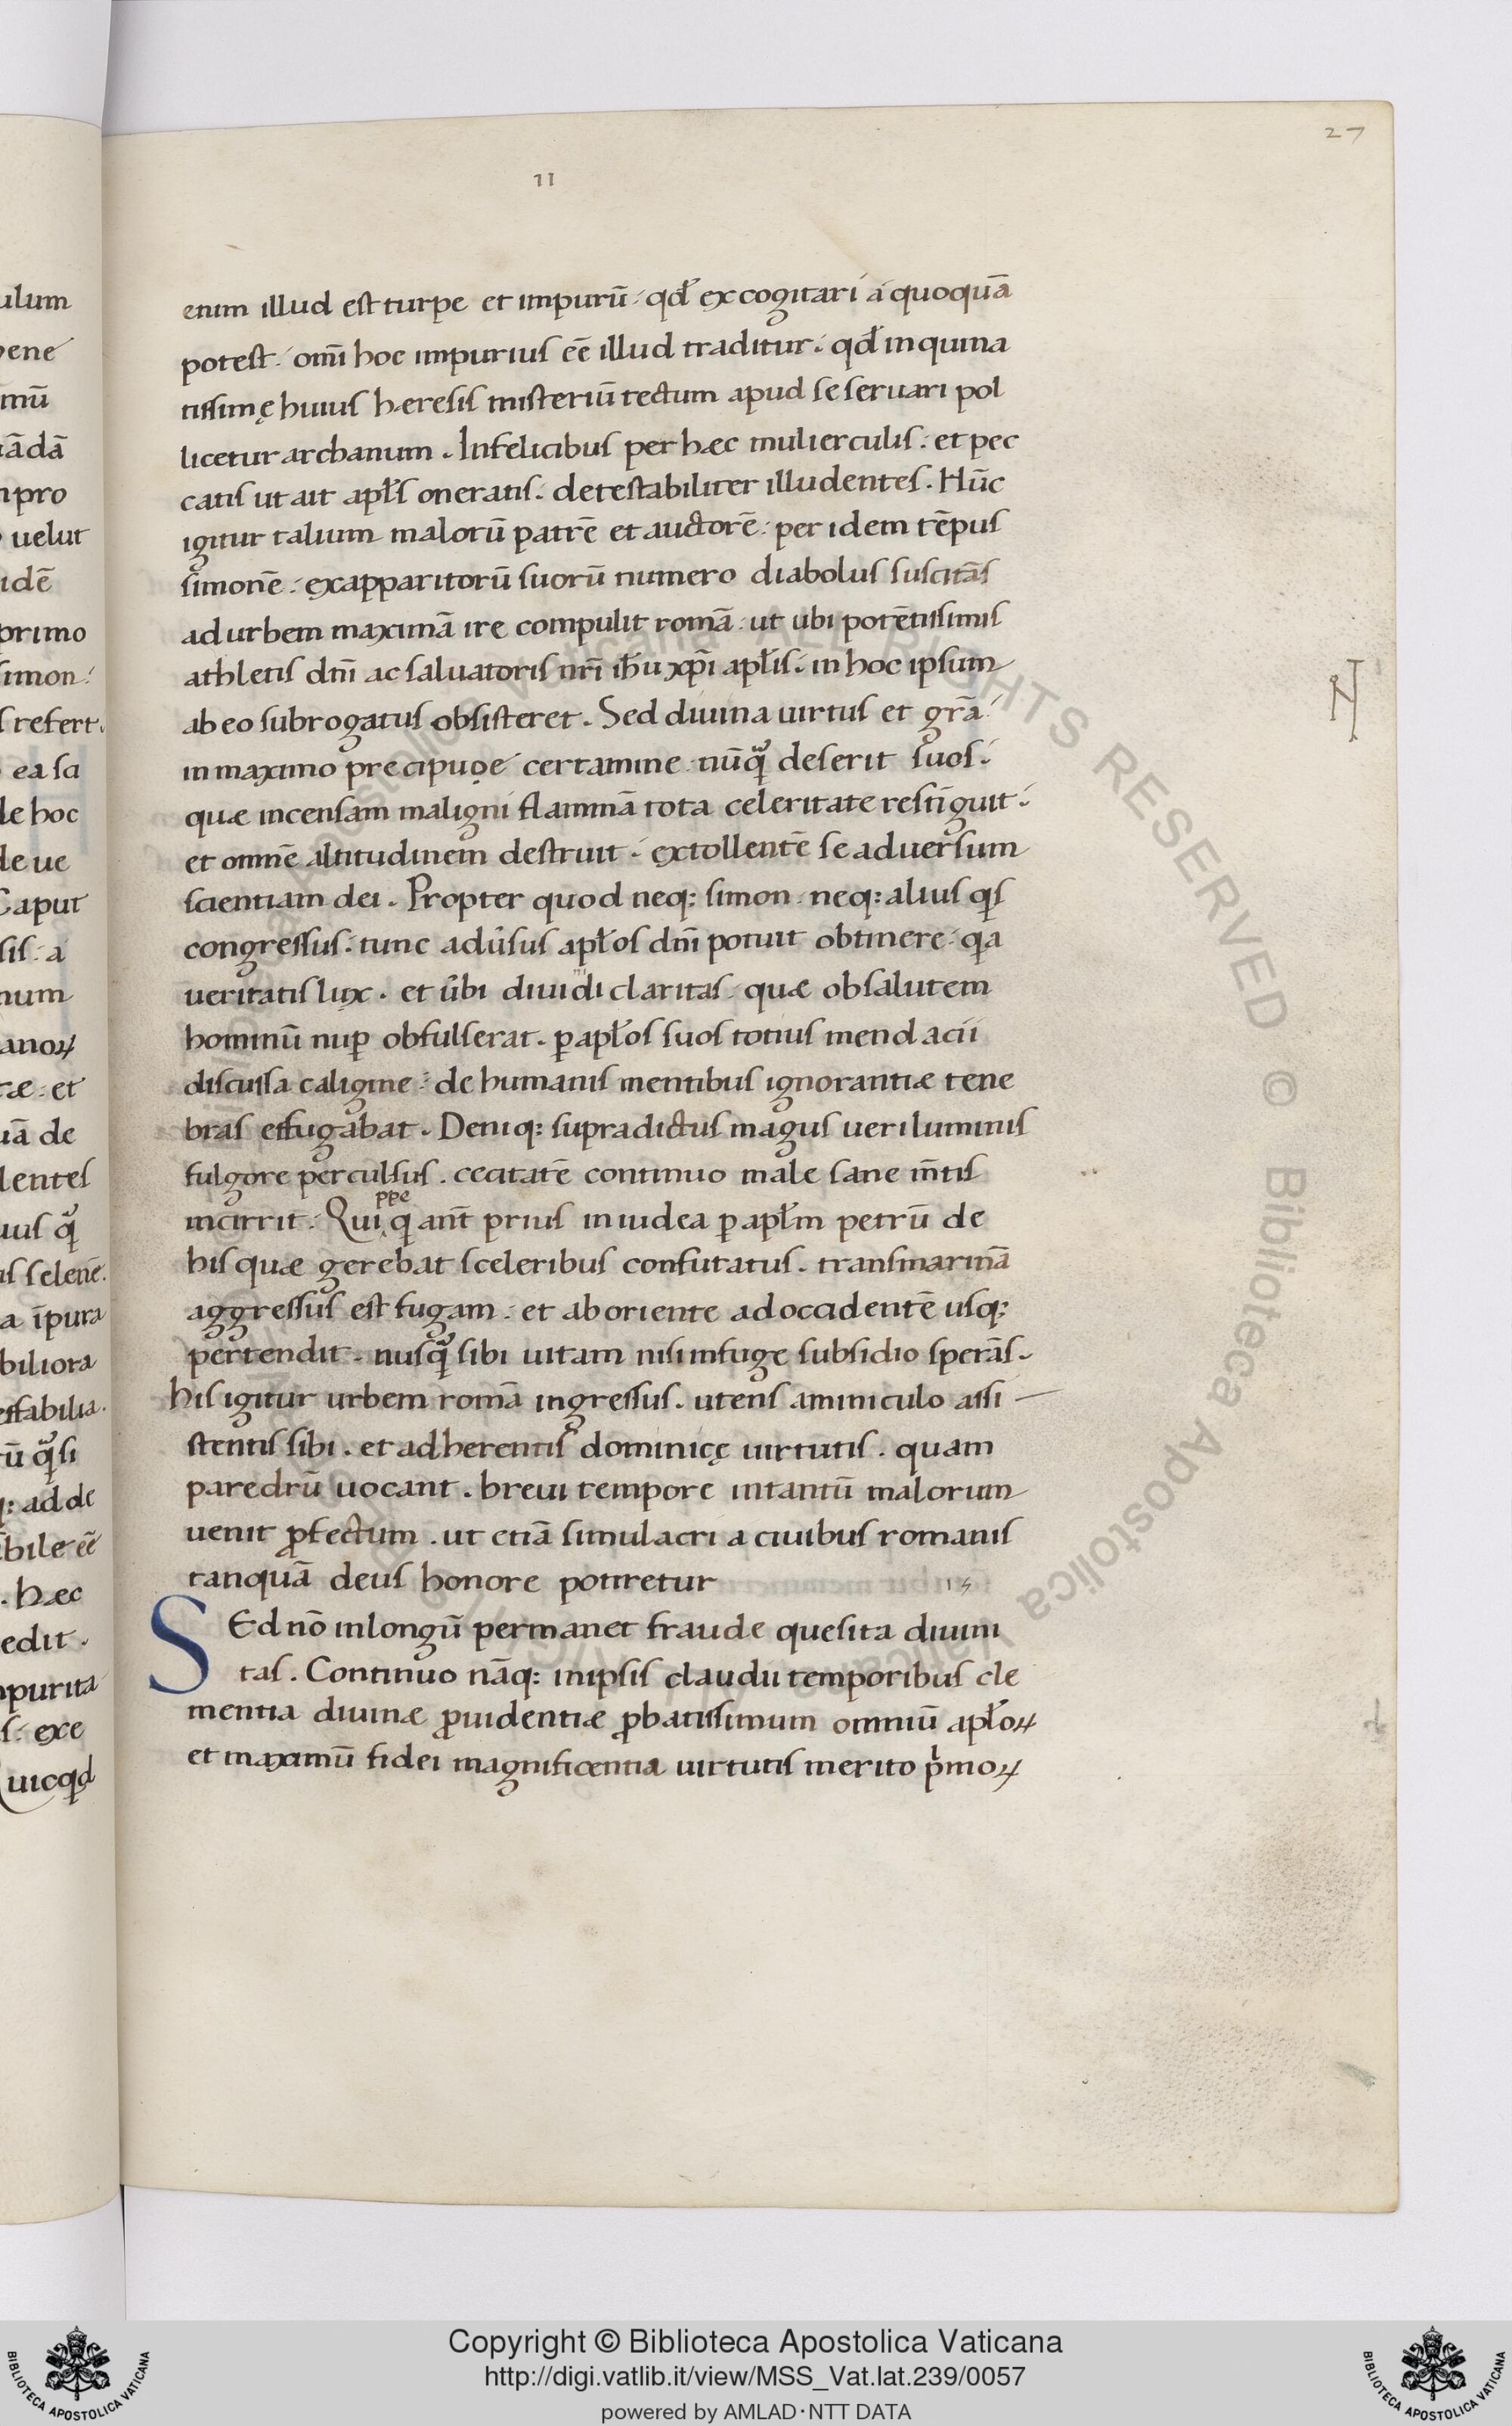 27
II
enim illud est turpe et impurū · qđ excogitari a quoquā
potest · omī hoc impurius eē illud traditur · qđ inquina
tissimę huius hæresis misteriū tectum apud se seruari pol
licetur archanum . Infelicibus per hæc mulierculis · et pec
catis ut ait apłs oneratis · detestabiliter illudentes . Hūc
igitur talium malorū patrē et auctorē · per idem tēpus
simonē · ex apparitorū suorū numero diabolus suscitās
ad urbem maximā ire compulit romā · ut ubi potētissimis
athletis dn̄i ac saluatoris nr̄i ih̄u xp̄i apłis · in hoc ipsum
ab eo subrogatus obsisteret . Sed diuina uirtus et gr̄a
in maximo precipuọe certamine nūq̄ deserit suos ·
quæ incensam maligni flammā tota celeritate restīguit ·
et omnē altitudinem destruit · extollentē se aduersum
scientiam dei . Propter quod neq: simon neq: alius qs
congressus · tunc adūsus apłos dn̄i potuit obtinere · qa
ueritatis lux . et ūbi diuidi claritas quæ ob salutem
hominū nup̄ obfulserat . p̄ apłos suos totius mendacii
discussa caligine · de humanis mentibus ignorantiæ tene
bras effugabat . Deniq: supradictus magus ueri luminis
fulgore perculsus . cecitatē continuo male sane m̄tis
incirrit · Qui q ant̄ prius in iudea p̄ apłm petrū de
ppe
his quæ gerebat sceleribus confutatus . transmarinā
aggressus est fugam · et ab oriente ad occidentē usq:
pertendit . nusq̄ sibi uitam nisi in fuge subsidio sperās ·
his igitur urbem romā ingressus . utens aminiculo assi
stentis sibi . et adherentis dominicę uirtutis . quam
paredrū uocant . breui tempore in tantū malorum
uenit ꝓfectum . ut etiā simulacri a ciuibus romanis
tanquā deus honore potiretur
SEd nō in longū permanet fraude quesita diuini
tas . Continuo nāq: in ipsis claudii temporibus cle
mentia diuinæ ꝓuidentiæ ꝓbatissimum omniū apłoꝝ
et maximū fidei magnificentia uirtutis merito pͥmoꝝ
Copyright © Biblioteca Apostolica Vaticana
http://digi.vatlib.it/view/MSS_Vat.lat.239/0057
powered by AMLAD·NTT DATA
BIBLIOTECA APOSTOLICA VATICANA
BIBLIOTECA APOSTOLICA VATICANA